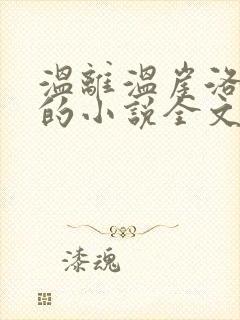 溫離溫崖洛
的小說全文
漆魂